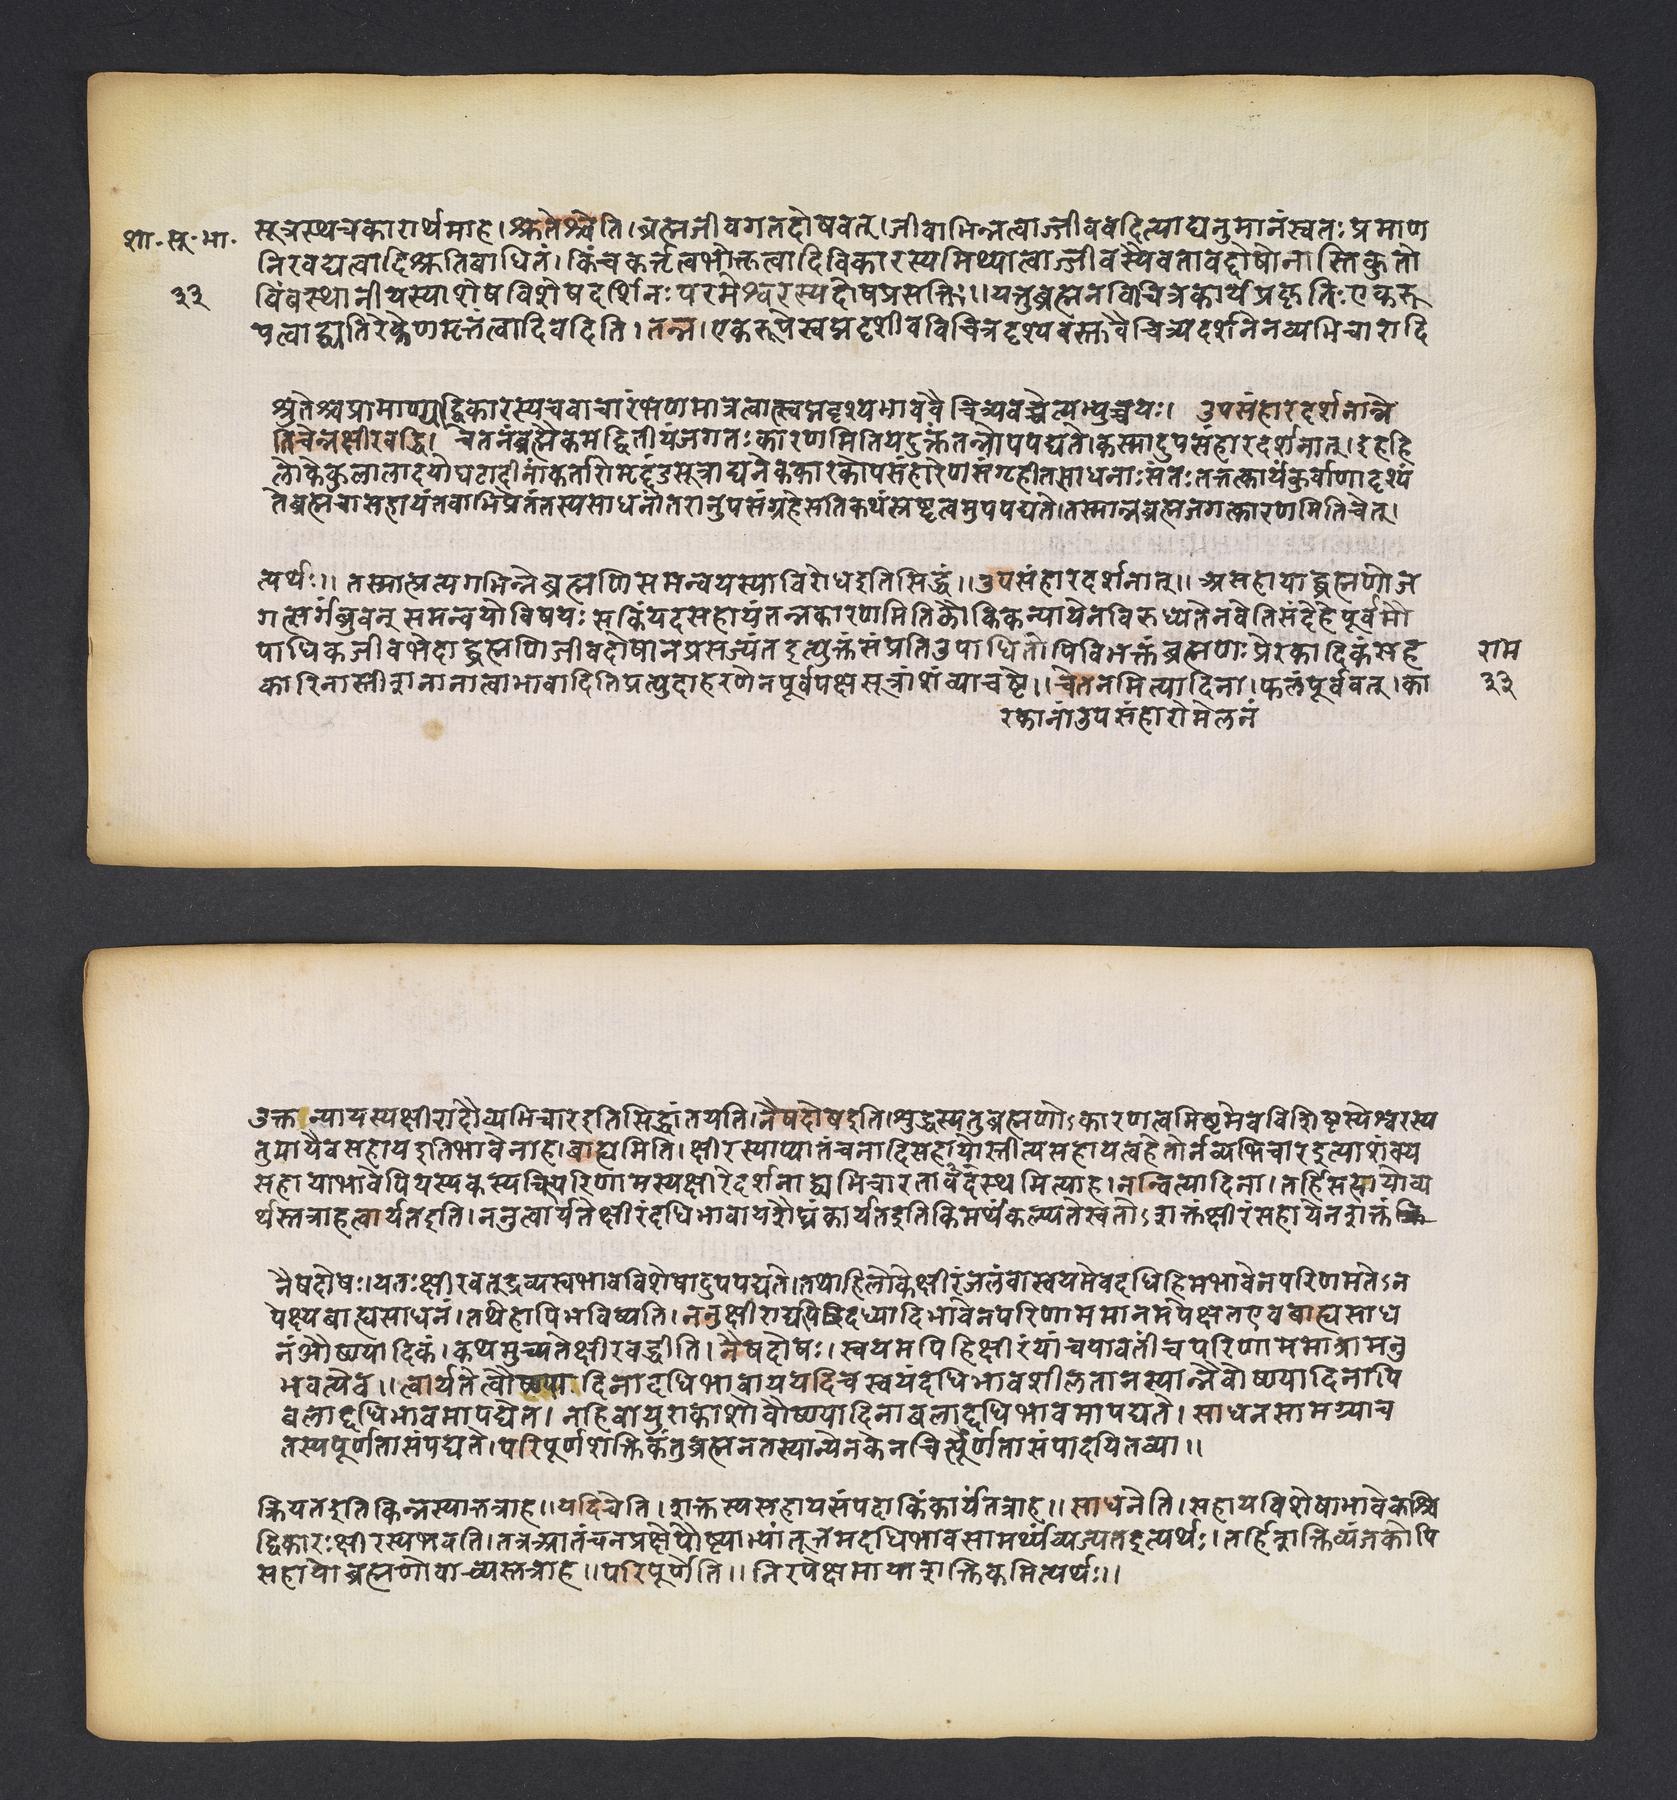 शा. सू. भा.
३३
सूत्रस्थचकारार्थमाह। श्रुतेश्चेति। ब्रह्मजीवगतदोषवत्। जीवाभिन्नत्वाज्जीववदित्याद्यनुमानंस्वतः प्रमाण
निरवद्यत्वादिश्रुतिबाधितं। किंचकर्तृत्वभोक्तृत्वादिविकारस्यमिथ्यात्वाज्जीवस्यैवतावद्दोषोनास्तिकुतो
बिंबस्थानीयस्याशेषविशेषदर्शिनः परमेश्वरस्यदोषप्रसक्तिः॥ यत्तुब्रह्मनविचित्रकार्यप्रकृतिः एकरू
पत्वाद्व्यतिरेकेणमृत्तंत्वादिवदिति। तन्न। एकरूपेस्वप्नदृशीवविचित्रदृश्यवस्तुवैचित्र्यदर्शनेनव्यभिचारादि
श्रुतेश्चप्रामाण्याद्विकारस्यचवाचारंभणमात्रत्वात्स्वप्नदृश्यभाववैचित्र्यवच्चेत्यभ्युच्चयः। उपसंहारदर्शनान्ने
तिचेन्नक्षीरवद्धि। चेतनंब्रह्मैकमद्वितीयंजगतः कारणमितियदुक्तंतन्नोपपद्यते। कस्मादुपसंहारदर्शनात्। इहहि
लोकेकुलालादयोघटादीनांकर्तारोमृद्दंडसूत्राद्यनेककारकोपसंहारेणसंगृहीतसाधनाः संतः तत्तत्कार्यंकुर्वाणादृश्यं
तेब्रह्मचासहायंतवाभिप्रेतंतस्यसाधनांतरानुपसंग्रहेसतिकथंस्रष्टृत्वमुपपद्यते। तस्मान्नब्रह्मजगत्कारणमितिचेत्।
त्यर्थः॥ तस्मात्प्रत्यगभिन्नेब्रह्मणिसमन्वयस्याविरोधइतिसिद्धं॥ उपसंहारदर्शनात्॥ असहायाद्ब्रह्मणोज
गत्सर्गंब्रुवन् समन्वयोविषयः सकिंयदसहायंतन्नकारणमितिलौकिकन्यायेनविरुध्यतेनवेतिसंदेहेपूर्वमौ
पाधिकजीवभेदाद्ब्रह्मणिजीवदोषानप्रसज्यंतइत्युक्तंसंप्रतिउपाधितोपिविभक्तंब्रह्मणः प्रेरकादिकंसह
कारिनास्तीशनानात्वाभावादितिप्रत्युदाहरणेनपूर्वपक्षसूत्रांशंव्याचष्टे॥ चेतनमित्यादिना। फलंपूर्ववत्। का
रकानांउपसंहारोमेलनं
राम
३३
उक्तन्यायस्यक्षीरादौव्यभिचारइतिसिद्धांतयति। नैषदोषइति। शुद्धस्यतुब्रह्मणोऽकारणत्वमिष्टमेवविशिष्टस्येश्वरस्य
तुमायैवसहायइतिभावेनाह। बाह्यमिति। क्षीरस्याप्यातंचनादिसहायोस्तीत्यसहायत्वहेतोर्नव्यभिचारइत्याशंक्य
सहायाभावेपियस्यकस्यचित्परिणामस्यक्षीरेदर्शनाद्व्यभिचारतादवस्थमित्याह। नन्वित्यादिना। तर्हिसहायोव्य
र्थस्तत्राहत्वार्यतइति। ननुत्वार्यतेक्षीरंदधिभावायशैघ्र्यंकार्यतइतिकिमर्थंकल्प्यतेस्वतोऽशक्तंक्षीरंसहायेनशक्तं
नैषदोषः। यतः क्षीरवतद्द्रव्यस्वभावविशेषादुपपद्यते। तथाहिलोकेक्षीरंजलंवास्वयमेवदधिहिमभावेनपरिणमतेऽन
पेक्ष्यबाह्यसाधनं। तथेहापिभविष्यति। ननुक्षीराद्यपिदध्यादिभावेनपरिणाममानमपेक्षतएवबाह्यसाध
नंऔष्ण्यादिकं। कथमुच्यतेक्षीरवद्धीति। नैषदोषः। स्वयमपिहिक्षीरंयांचयावतींचपरिणाममात्रामनु
भवत्येव॥ त्वार्यतेत्वौष्ण्यादिनादधिभावाययदिचस्वयंदधिभावशीलतानस्यान्नैवौष्ण्यादिनापि
बलाद्दधिभावमापद्येत। नहिवायुराकाशोवौष्ण्यादिनाबलाद्दधिभावमापद्यते। साधनसामग्र्याच
तस्यपूर्णतासंपद्यते। परिपूर्णशक्तिकंतुब्रह्मनतस्यान्येनकेनचित्पूर्णतासंपादयितव्या॥
क्रियतइतिकिन्नस्यात्तत्राह॥ यदिचेति। शक्तस्यसहायसंपदाकिंकार्यंतत्राह॥ साधनेति। सहायविशेषाभावेकश्चि
द्विकारः क्षीरस्यभवति। तत्रआतंचनप्रक्षेपौष्ण्याभ्यांतूत्तमदधिभावसामर्थ्यंव्यज्यतइत्यर्थः। तर्हिशक्तिव्यंजकोपि
सहायोब्रह्मणोवाच्यस्तत्राह॥ परिपूर्णेति॥ निरपेक्षमायाशक्तिकमित्यर्थः॥